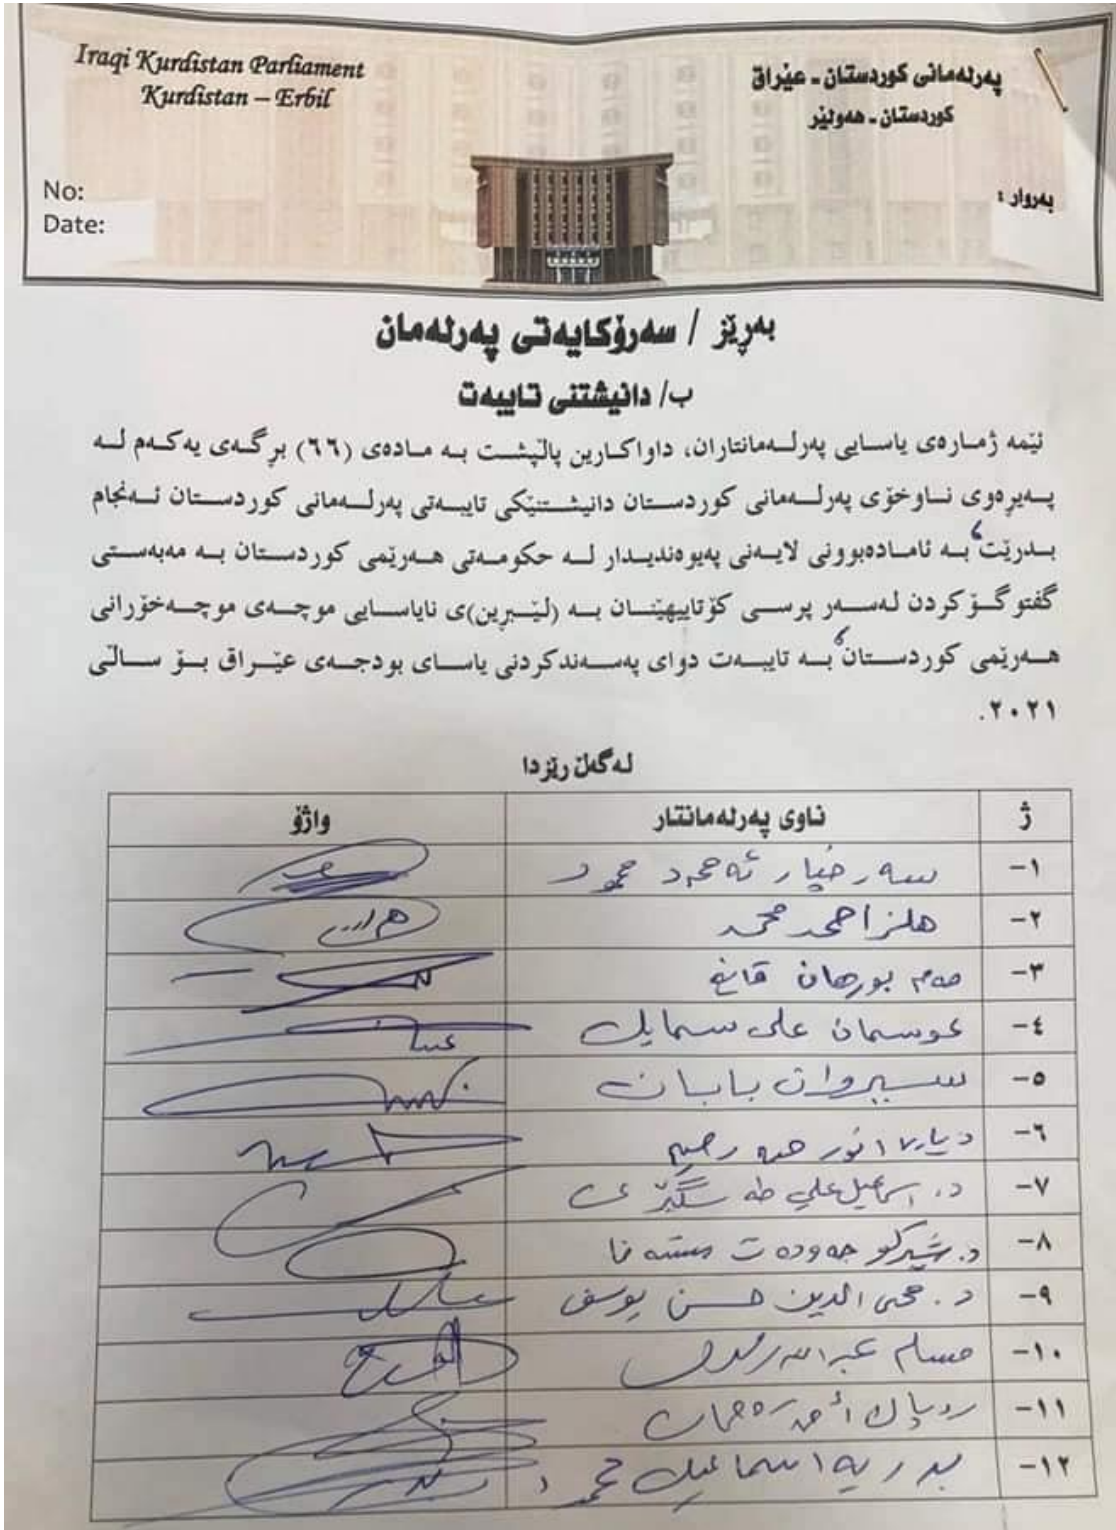 Iraqi Kurdistan Parliament
Kurdistan – Erbil
پەرلەمانی کوردستان ـ عێراق
کوردستان ـ هەولێر
No:
Date:
بەروار :
بەڕێز / سەرۆکایەتی پەرلەمان
ب/ دانیشتنی تایبەت
ئێمە ژمارەی یاسایی پەرلەمانتاران، داواکارین پاڵپشت بە مادەی (٦٦) بڕگەی یەکەم لە
پەیڕەوی ناوخۆی پەرلەمانی کوردستان دانیشتنێکی تایبەتی پەرلەمانی کوردستان ئەنجام
بدرێت، بە ئامادەبوونی لایەنی پەیوەندیدار لە حکومەتی هەرێمی کوردستان بە مەبەستی
گفتوگۆکردن لەسەر پرسی کۆتاییهێنان بە (لێبڕین)ی نایاسایی موچەی موچەخۆرانی
هەرێمی کوردستان، بە تایبەت دوای پەسەندکردنی یاسای بودجەی عێراق بۆ ساڵی
٢٠٢١.
لەگەڵ رێزدا
ژ ناوی پەرلەمانتار واژۆ
١- سەرخیار ئەحمەد محمود
٢- هلز احمد محمد
٣- بورهان قانع
٤- عوسمان علی سمایل
٥- سیروان بابان
٦- انور رحیم
٧- د. اسماعیل علي طه
٨- د. شیرکو جەودەت مستەفا
٩- د. محی الدین حسن یوسف
١٠- مسلم عبدالله
١١- روپاك أحمد رەحمان
١٢- بدریە اسماعیل محمود